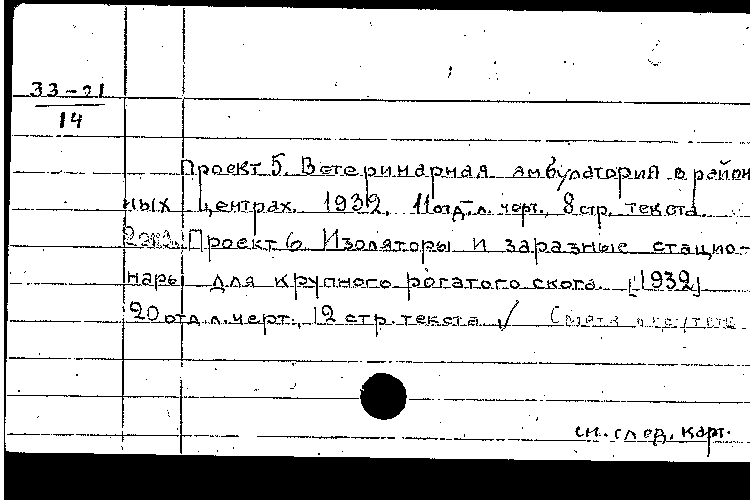 33-21
14
Проект 5. Ветеринарная амбулатория в район
ных центрах. 1932. 11 отд. л. черт., 8 стр. текста.
2 экз. Проект 6. Изоляторы и заразные стацио-
нары для крупного рогатого скота. [1932]
20 отд. л. черт., 12 стр. текста √
см. след. карт.